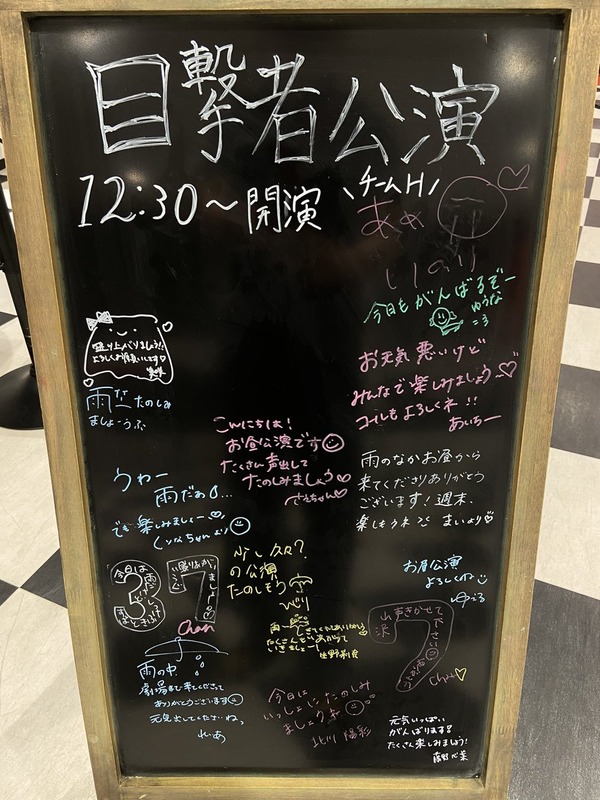 目撃者公演
12:30～開演
\チームH/
あめ
いのり
今日もがんばるぞー
ゆうな
盛り上がりましょう!
よろしくお願いします
雨だーたのしみ
ましょーうふ
お天気 悪いけど
みんなで楽しみましょう~♡
コールもよろしくネ!!
あいちー
こんにちは!
お昼公演です
たくさん声出して
たのしみましょう
雨のなかお昼から
来てくださりありがとう
ございます!週末、
楽しもうね
まいより♡
うわー
雨だぁ...
でも楽しみましょー♡
少し久々?
の公演
たのしもう
お昼公演
よろしくね
37
Chan
山声きかせて
下さい
7
Chan♡
雨の中
劇場まで来てくださって
ありがとうございます
元気出してくださーねっ
れいあ
たくさんもりあがって
いきましょー!
今日は
いっしょにたのしみ
ましょうネ
北川 陽彩
元気いっぱい
がんばります!
たくさん楽しみましょう!